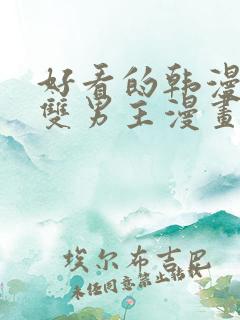 好看的韩漫
雙男主漫畫
埃尔布吉巴
未经同意禁止转载